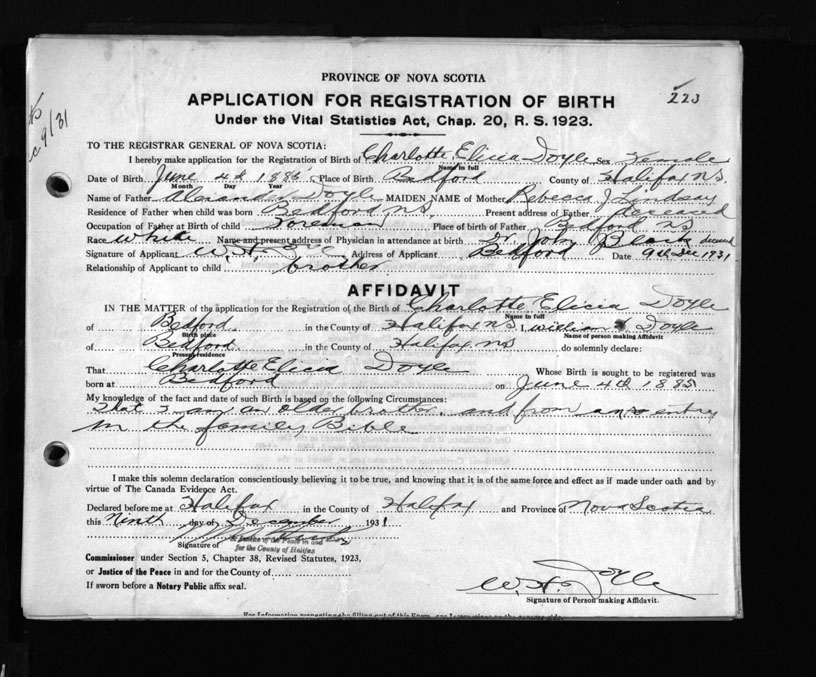 223
PROVINCE OF NOVA SCOTIA
APPLICATION FOR REGISTRATION OF BIRTH
Under the Vital Statistics Act, Chap. 20, R. S. 1923.
TO THE REGISTRAR GENERAL OF NOVA SCOTIA:
I hereby make application for the Registration of Birth of Charlotte Elicia Doyle Sex Female
Name in full
Date of Birth June 4th 1885 Place of Birth Bedford County of Halifax N.S.
Month Day Year
Name of Father Alexander Doyle MAIDEN NAME of Mother Rebecca J. Lindsay
Residence of Father when child was born Bedford, N.S. Present address of Father deceased
Occupation of Father at Birth of child Foreman Place of birth of Father Bedford N.S.
Race White Name and present address of Physician in attendance at birth Dr. John Black deceased
Signature of Applicant W. H. Doyle Address of Applicant Bedford Date 9th Dec 1931
Relationship of Applicant to child brother
AFFIDAVIT
IN THE MATTER of the application for the Registration of the Birth of Charlotte Elicia Doyle
Name in full
of Bedford in the County of Halifax N.S. I, William H Doyle
Birth place Name of person making Affidavit
of Bedford in the County of Halifax N.S. do solemnly declare:
Present residence
That Charlotte Elicia Doyle Whose Birth is sought to be registered was
born at Bedford on June 4th 1885
My knowledge of the fact and date of such Birth is based on the following Circumstances:
That I am an older brother and from an entry
in the family Bible
I make this solemn declaration conscientiously believing it to be true, and knowing that it is of the same force and effect as if made under oath and by
virtue of The Canada Evidence Act.
Declared before me at Halifax in the County of Halifax and Province of Nova Scotia
this Ninth day of December 1931
Signature of
for the County of Halifax
Commissioner under Section 5, Chapter 38, Revised Statutes, 1923,
or Justice of the Peace in and for the County of
If sworn before a Notary Public affix seal.
W. H. Doyle
Signature of Person making Affidavit.